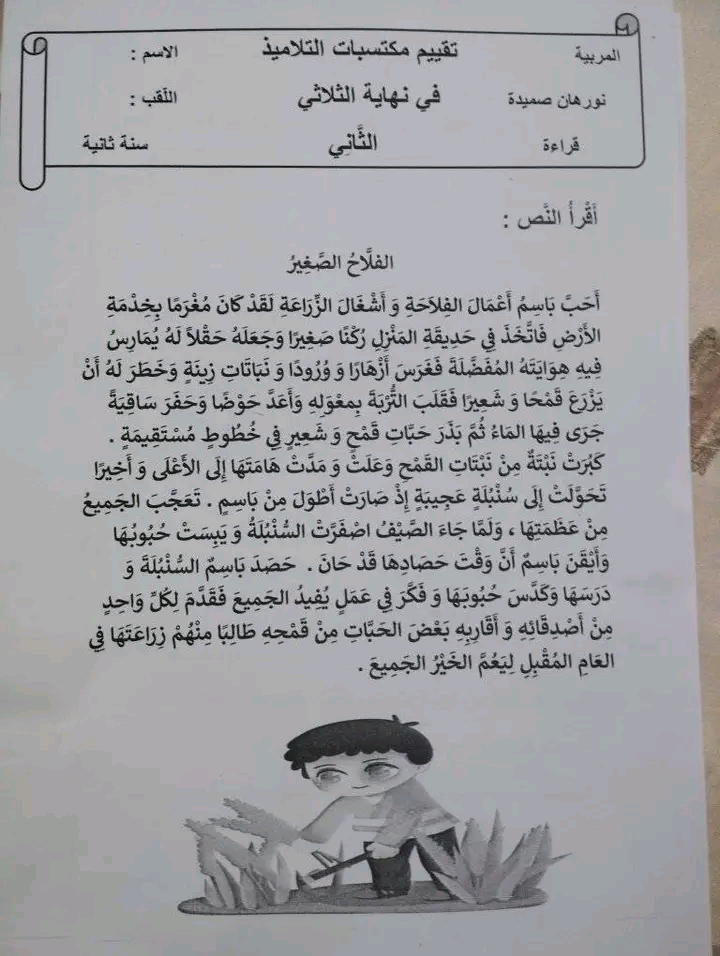 المربية تقييم مكتسبات التلاميذ الاسم :
نورهان صميدة في نهاية الثلاثي اللّقب :
قراءة الثَّانِي سنة ثانية
أَقْرَأُ النَّص :
الفلَّاحُ الصَّغِيرُ
أَحَبَّ بَاسِمُ أَعْمَالَ الفِلاَحَةِ وَ أَشْغَالَ الزِّرَاعَةِ لَقَدْ كَانَ مُغْرَمًا بِخِدْمَةِ
الأَرْضِ فَاتَّخَذَ فِي حَدِيقَةِ المَنْزِلِ رُكْنًا صَغِيرًا وَجَعَلَهُ حَقْلاً لَهُ يُمَارِسُ
فِيهِ هِوَايَتَهُ المُفَضَّلَةَ فَغَرَسَ أَزْهَارًا وَ وُرُودًا وَ نَبَاتَاتِ زِينَةٍ وَخَطَرَ لَهُ أَنْ
يَزْرَعَ قَمْحًا وَ شَعِيرًا فَقَلَبَ التُّرْبَةَ بِمعْوَلِهِ وَأَعَدَّ حَوْضًا وَحَفَرَ سَاقِيَةً
جَرَى فِيهَا المَاءُ ثُمَّ بَذَرَ حَبَّاتِ قَمْحٍ وَ شَعِيرٍ فِي خُطُوطٍ مُسْتَقِيمَةٍ .
كَبُرَتْ نَبْتَةٌ مِنْ نَبْتَاتِ القَمْحِ وَعَلَتْ وَ مَدَّتْ هَامَتَهَا إِلَى الأَعْلَى وَ أَخِيرًا
تَحَوَّلَتْ إِلَى سُنْبُلَةٍ عَجِيبَةٍ إِذْ صَارَتْ أَطْوَلَ مِنْ بَاسِمٍ . تَعَجَّبَ الجَمِيعُ
مِنْ عَظَمَتِهَا ، وَلَمَّا جَاءَ الصَّيْفُ اصْفَرَّتْ السُّنْبُلَةُ وَ يَبِسَتْ حُبُوبُهَا
وَأَيْقَنَ بَاسِمٌ أَنَّ وَقْتَ حَصَادِهَا قَدْ حَانَ . حَصَدَ بَاسِمٌ السُّنْبُلَةَ وَ
دَرَسَهَا وَكَدَّسَ حُبُوبَهَا وَ فَكَّرَ فِي عَمَلٍ يُفِيدُ الجَمِيعَ فَقَدَّمَ لِكُلِّ وَاحِدٍ
مِنْ أَصْدِقَائِهِ وَ أَقَارِبِهِ بَعْضَ الحَبَّاتِ مِنْ قَمْحِهِ طَالِبًا مِنْهُمْ زِرَاعَتَهَا فِي
العَامِ المُقْبِلِ لِيَعُمَّ الخَيْرُ الجَمِيعَ .